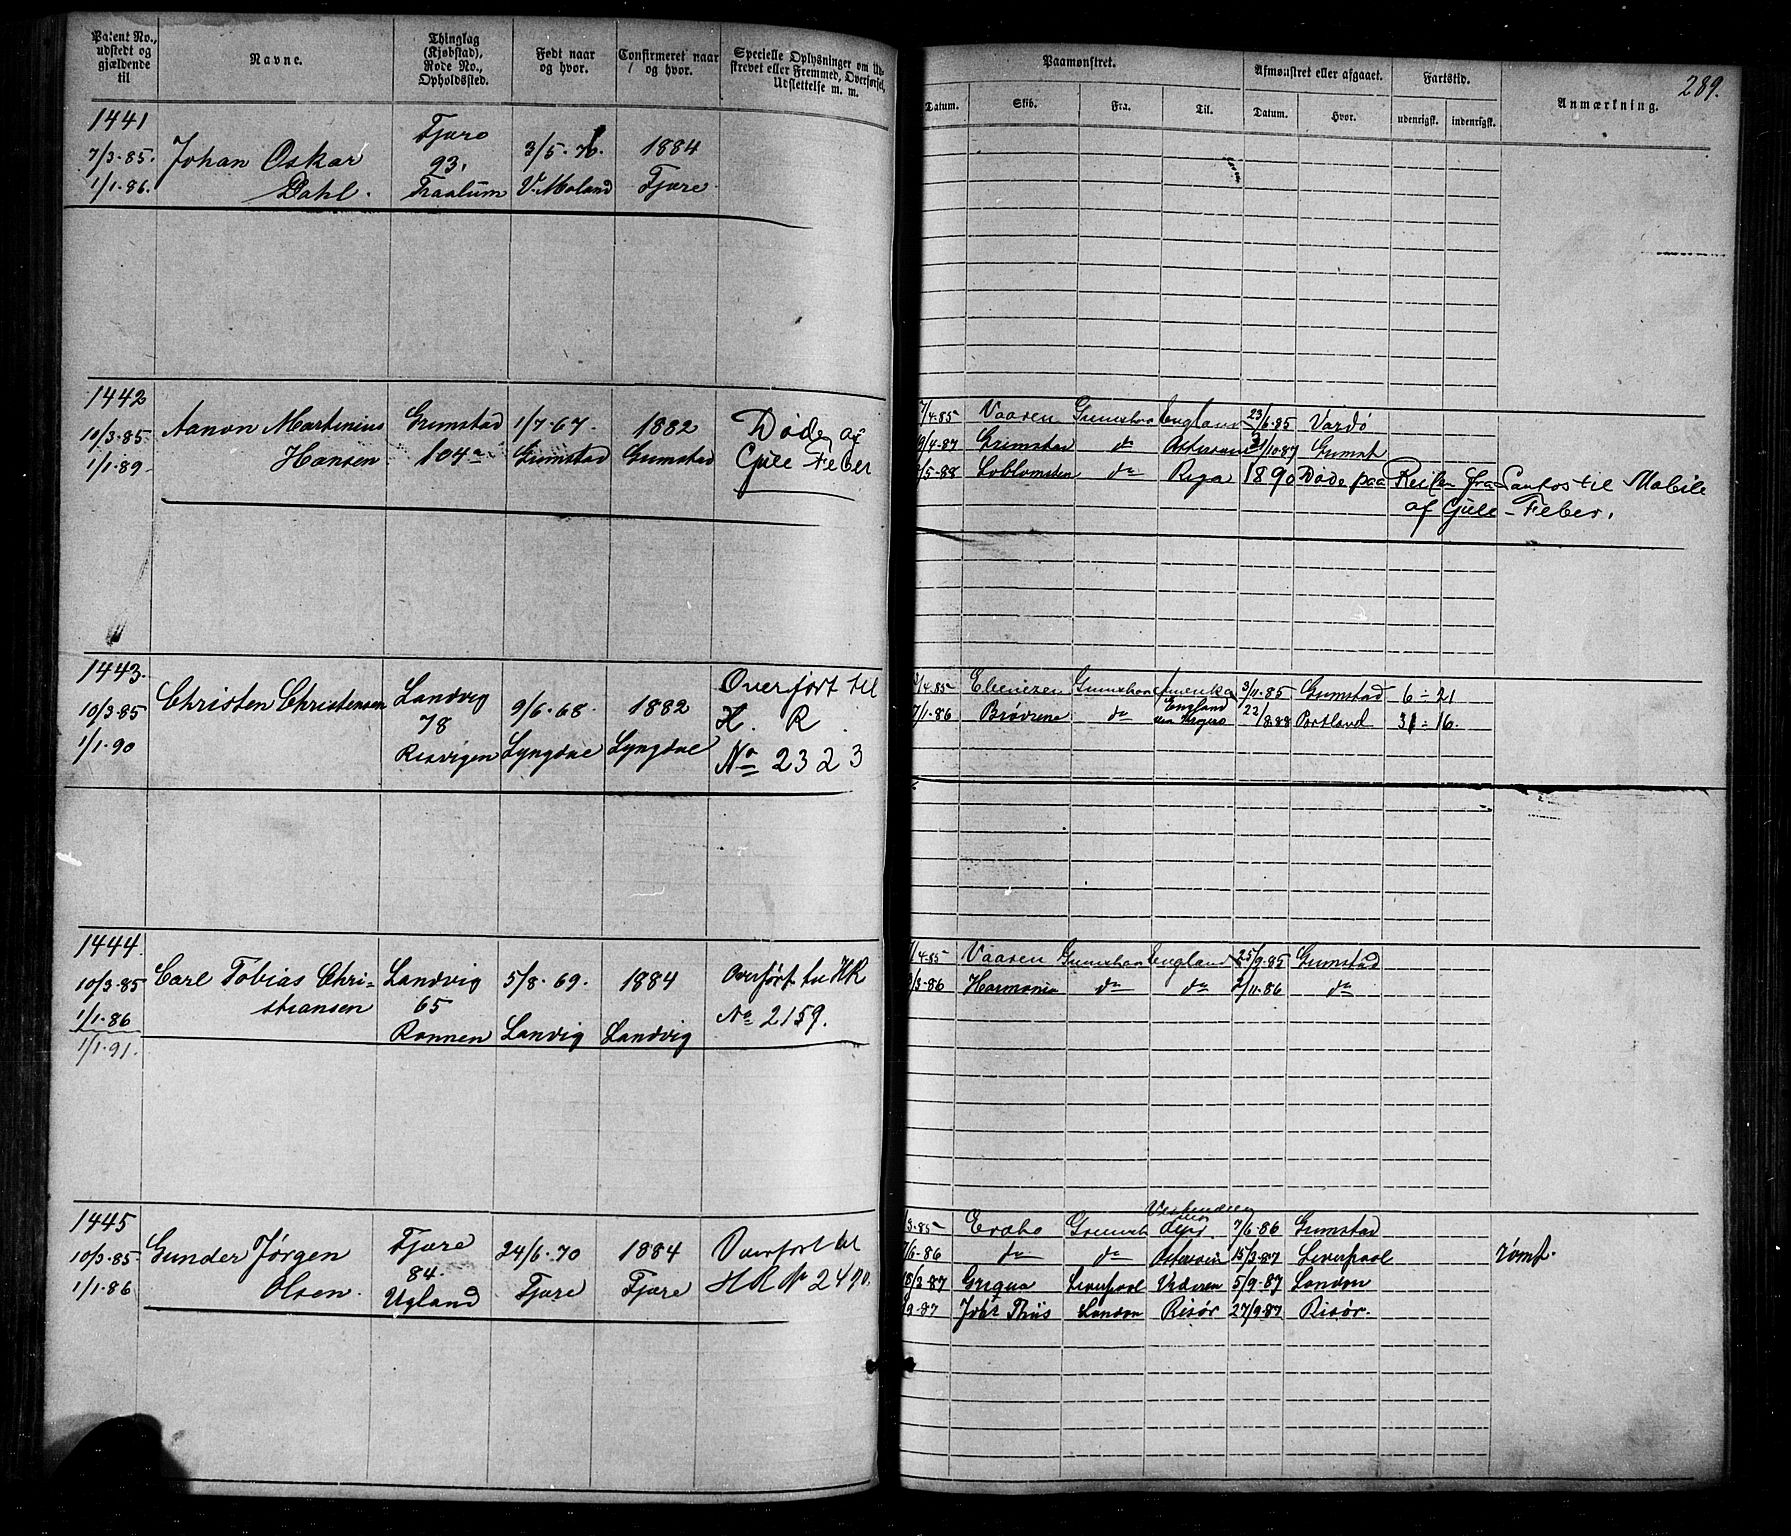 289.
Patent No., udstedt og gjældende til
Navne.
Thinglag (Kjøbstad), Rode No., Opholdssted.
Født naar og hvor.
Confirmeret naar og hvor.
Specielle Oplysninger om
strevet eller Fremmed, Overførsel, Udslettelse m. m.
Paamønstret.
Afmønstret eller afgaaet.
Fartstid.
Anmærkning.
Datum. Skib. Fra. Til. Datum. Hvor. udenrigsk. indenrigsk.
1441
7/3.85. Johan Oskar 93, 3/5. 1884
1/1.86. Dahl. V. Moland Fjære.
1442
10/3.85. Aanon Martinius Grimstad 1/7.67. 1882 Døde af
1/1.89. Hansen 104a Grimstad Grimstad Gule Feber
7/4.85 Vaaren England 23/6.85 Vardø
9/4.87 Grimstad do Grimst
/5.88 do Riga 1890 Døde paa Reisen fra Santos til Mobile
af Gule-Feber.
1443.
10/3.85 Christen Christensen Landvig 9/6.68. 1882 Overført til
78 H. R.
1/1.90 Lyngdal Lyngdal No 2323
/4.85 Ebenezer Amerika 3/11.85 Grimstad 6 - 21
7/1.86 Brødrene do England 22/8.88 Portland 31 - 16
1444.
10/3.85 Carl Tobias Chri- Landvig 5/8.69. 1884 Overført til HR
1/1.86 stiansen 65 No 2159.
1/1.91. Ronnen Lanvig Landvig
/4.85 Vaaren England 25/9.85 Grimstad
/3.86 Harmonia do do /11.86 do
1445
10/3.85 Gunder Jørgen Fjære 24/6.70 1884 Overført til
84.
1/1.86 Olsen. Ugland Fjære Fjære HR
/3.85 7/6.86 Grimstad
7/6.86 do do 15/3.87 Liverpool rømt.
18/3.87 Griqua Liverpool 5/9.87 London
/9.87 London Risør 27/9.87 Risør.